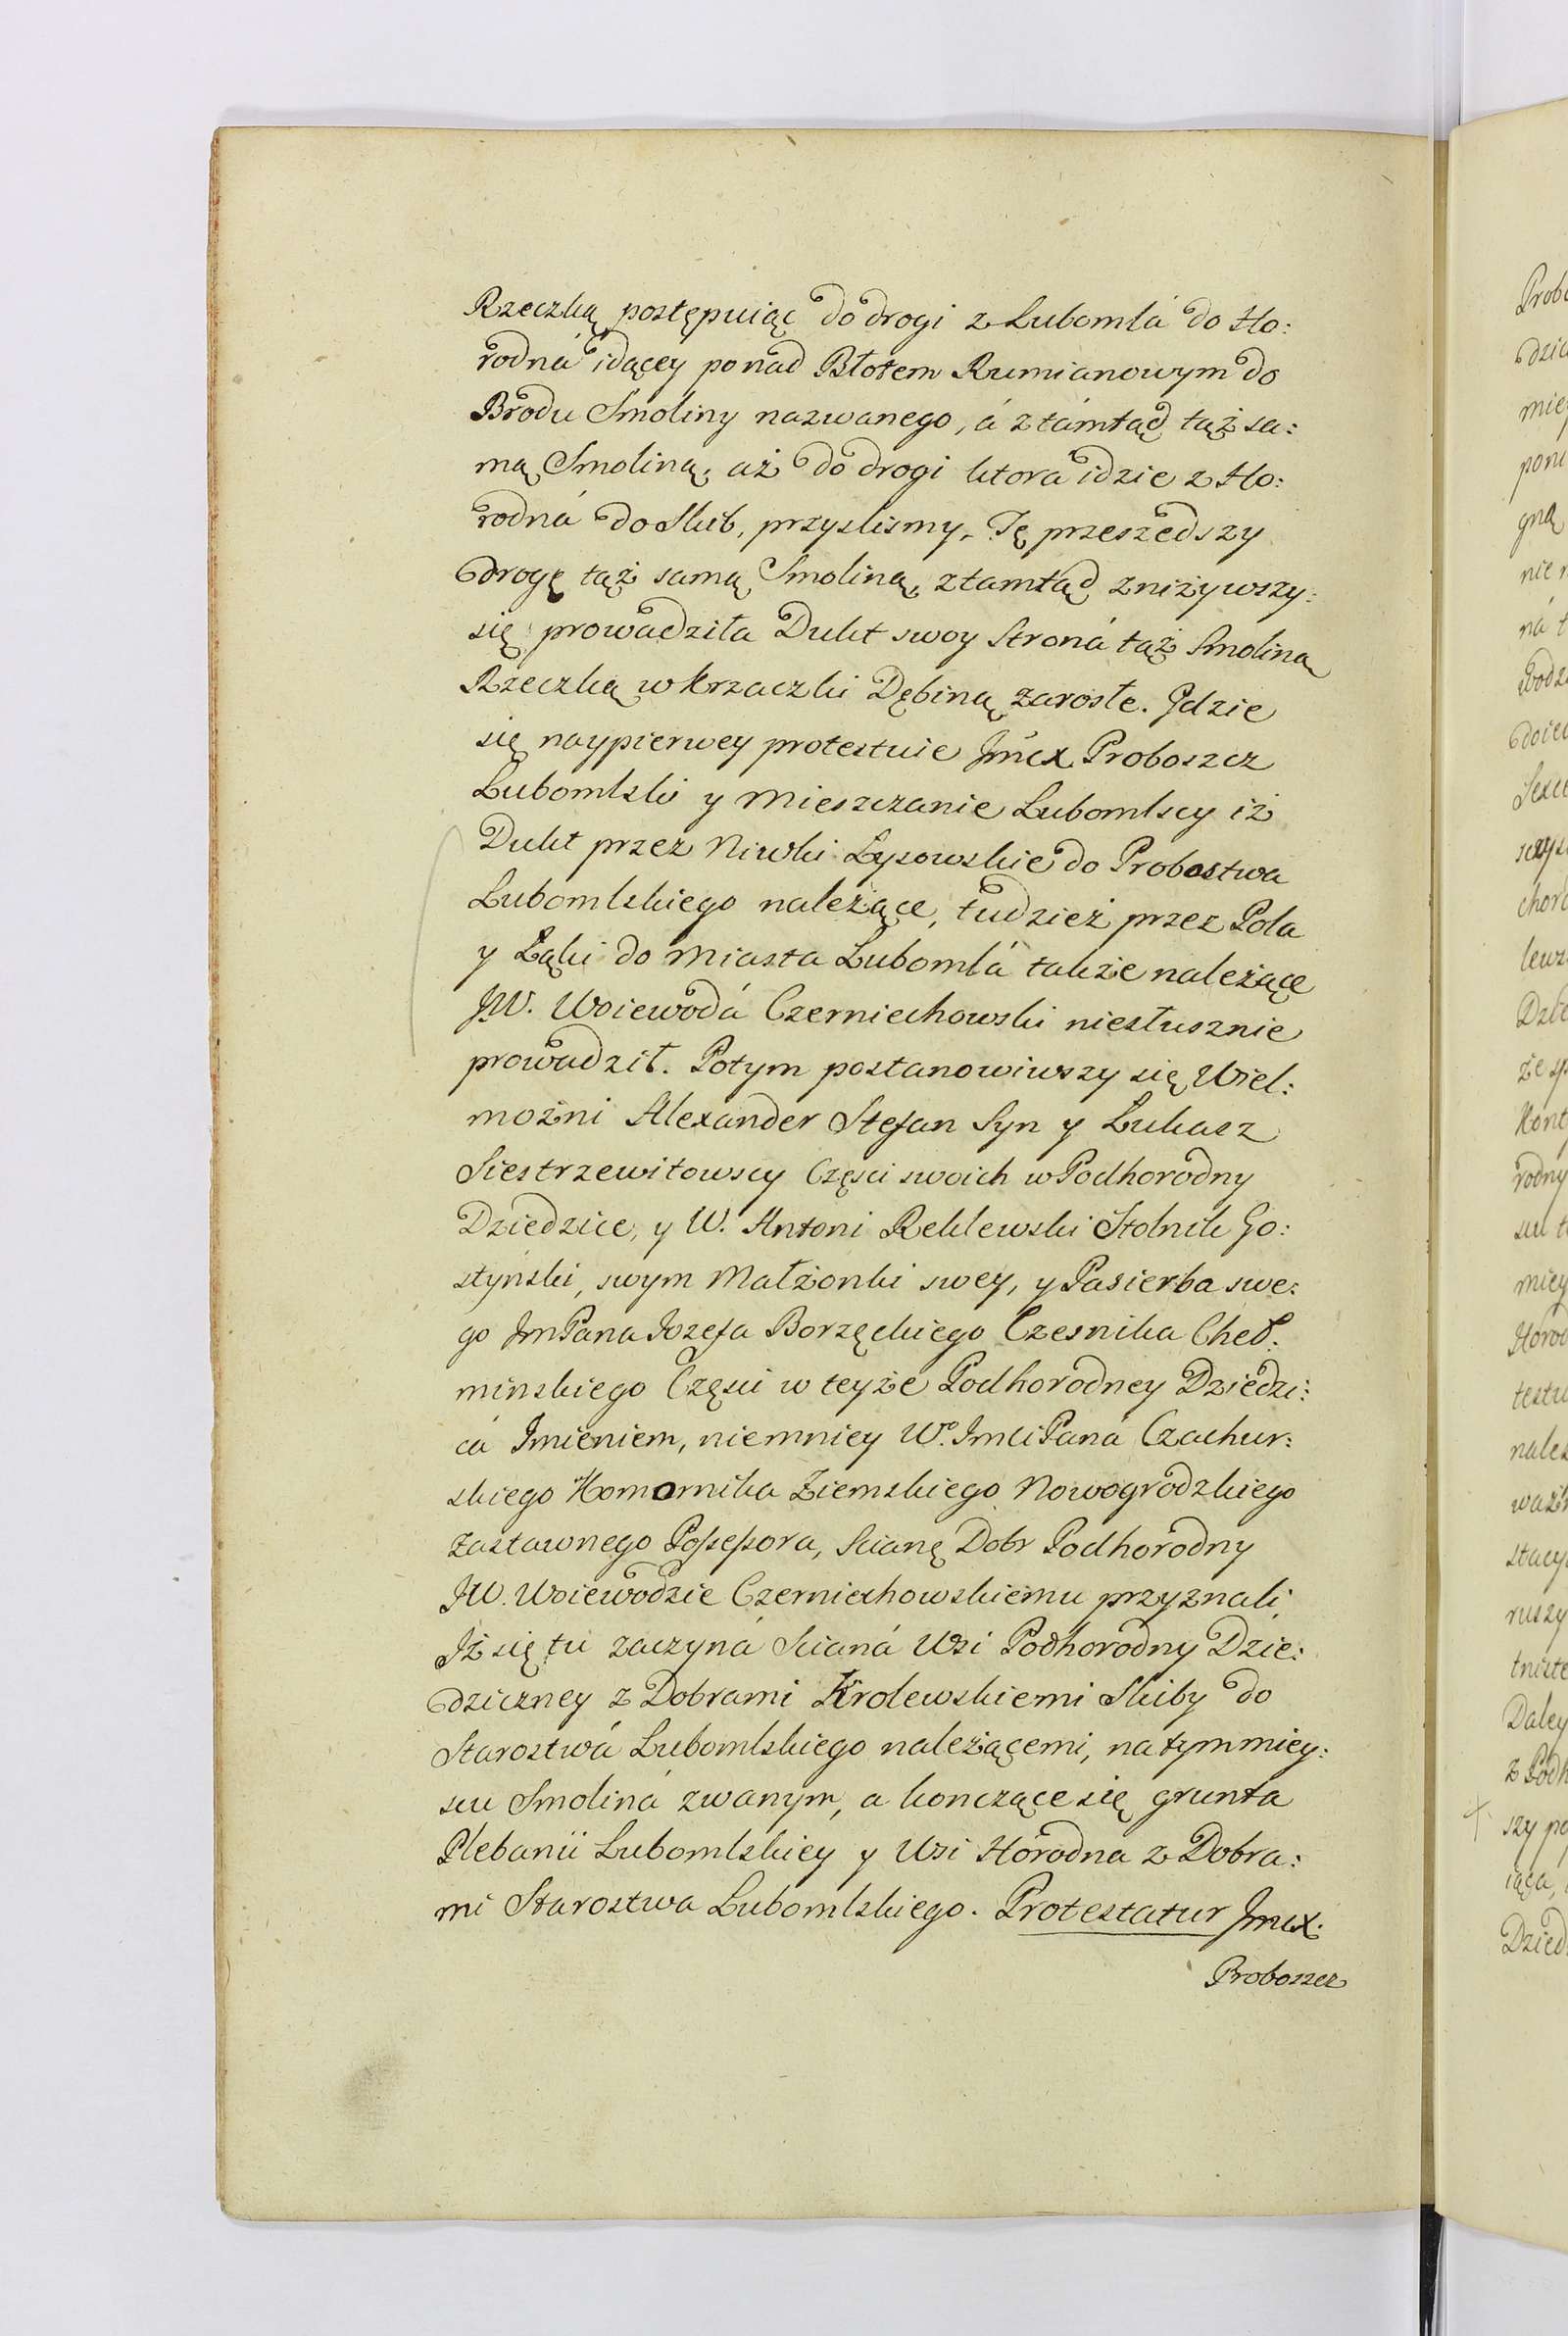 Rzeczką postępuiąc do drogi z Lubomla do Ho:
rodná idącey ponad Błotem Rumianowym do
Brodu Smoliny nazwanego, á ztámtąd tąż sa:
mą Smoliną, aż do drogi ktora idzie z Ho:
rodná do Skib, przyslismy. Tę przeszedszy
drogę tąż samą Smoliną, ztamtąd zniżywszy:
się prowadziła Dukt swoy Stroná tąż Smoliną
Rzeczką w krzaczki Dębiną zarosłe. Gdzie
się naypierwey protestuie Jmćx Proboszcz
Lubomlski y Mieszczanie Lubomlscy iż
Dukt przez Niwki Łysowskie do Probostwa
Lubomlskiego należące, tudzież przez Pola
y Łąki do Miasta Lubomlá także należące
JW. Woiewodá Czerniechowski niesłusznie
prowadził. Potym postanowiwszy się Wiel:
możni Alexander Stefan Syn y Łukasz
Siestrzewitowscy Częsci swoich w Podhorodny
Dziedzice, y W. Antoni Reklewski Stolnik Go:
styński, swym Małżonki swey, y Pasierba swe:
go JmPana Jozefa Borzęckiego Czesnika Cheł:
minskiego Częsci w teyże Podhorodney Dziedzi:
cá Jmieniem, niemniey Wo. JmciPaná Czachur:
skiego Komornika Ziemskiego Nowogrodzkiego
zastawnego Possessora, Scianę Dobr Podhorodny
JW. Woiewodzie Czerniechowskiemu przyznali,
Jż się tu zaczyná Scianá Wsi Podhorodny Dzie:
dziczney z Dobrami Krolewskiemi Skiby do
Starostwá Lubomlskiego należącemi, na tym miey:
scu Smoliná zwanym, a konczące się grunta
Plebanii Lubomlskiey y Wsi Horodna z Dobra:
mi Starostwa Lubomlskiego. Protestatur Jmcx.
Proboszcz